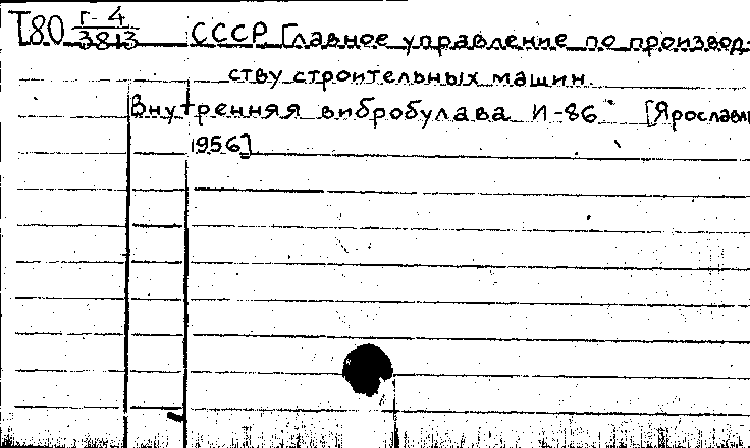 Т80 Г-4/3813 СССР Главное управление по производ-
ству строительных машин.
Внутренняя вибробулава И-86 [Ярославль
1956]